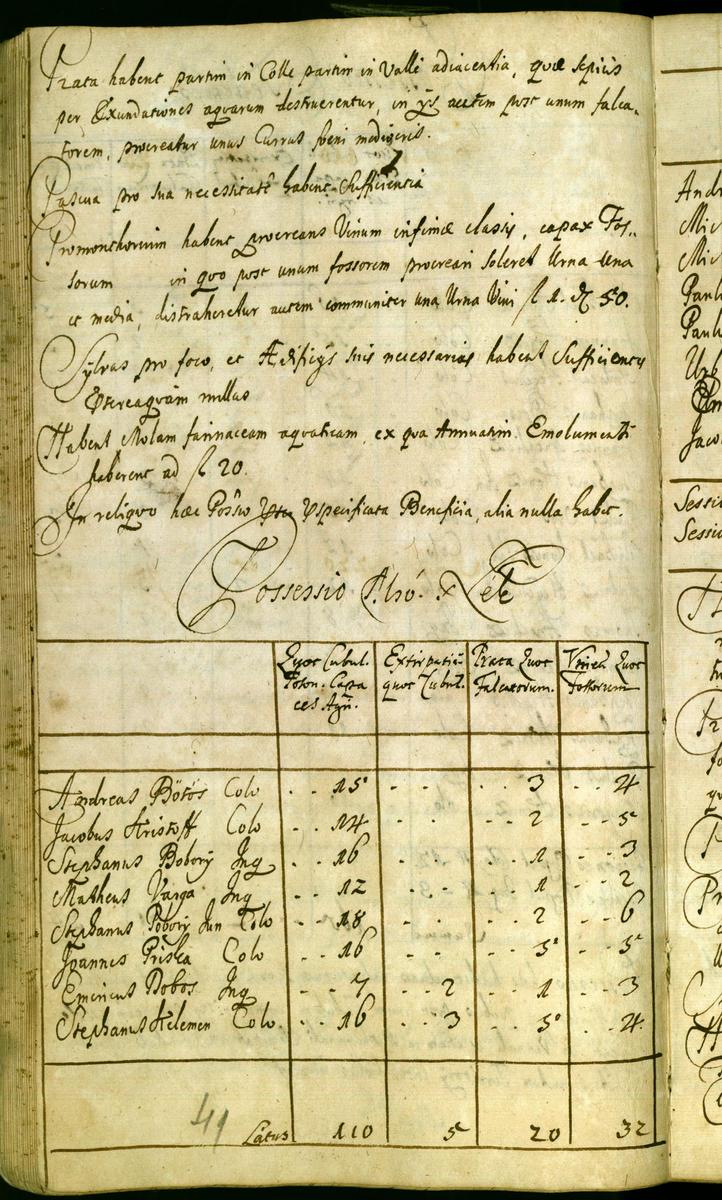 Prata habent partim in Colle partim in Valle adiacentia, quæ sepius
per Exundationes aquarum destruerentur, in ijs autem post unum falca-
torem, procreatur unus Currus foeni mediocris.
Pascua pro sua necessitate habent Sufficientia
Promonthorium habent procreans Vinum infimæ classis, capax Fos-
sorum in quo post unum fossorem procreari soleret Urna una
et media, distraheretur autem communiter una Urna Vini fl 1. d 50.
Sylvas pro foco, et Ædificijs suis necessarias habent Sufficientes
Præterea quam nullas
Habent Molam farinaceam aquaticam, ex qua Annuatim Emolumenti
haberent ad fl 20.
In reliquo hæc Posso specificata Beneficia, alia nulla habet.
Possessio Alsó Lete
Quot Cubul. Poson. Capaces Agri.
Extirpatu quot Cubul.
Prata Quot Falcatorum.
Vinea Quot Fossorum
Andreas Bötös Colo . . 15 . . 3 . . 4
Jacobus Kristoff Colo . . 14 . . 2 . . 5
Stephanus Bobory Inq . . 16 . . 1 . . 3
Matheus Varga Inq . . 12 . . 1 . . 2
Stephanus Bobory Jun Colo . . 18 . . 2 . . 6
Joannes Priska Colo . . 16 . . 5 . . 5
Emericus Bobos Inq . . 7 . . 2 . . 1 . . 3
Stephanus Kelemen Colo . . 16 . . 3 . . 5 . . 4
41 Latus 110 5 20 32